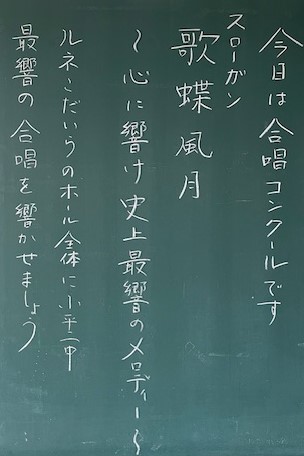 今日は合唱コンクールです
スローガン
歌蝶風月
～心に響け史上最響のメロディー～
ルネこだいらのホール全体に小平二中
最響の合唱を響かせましょう